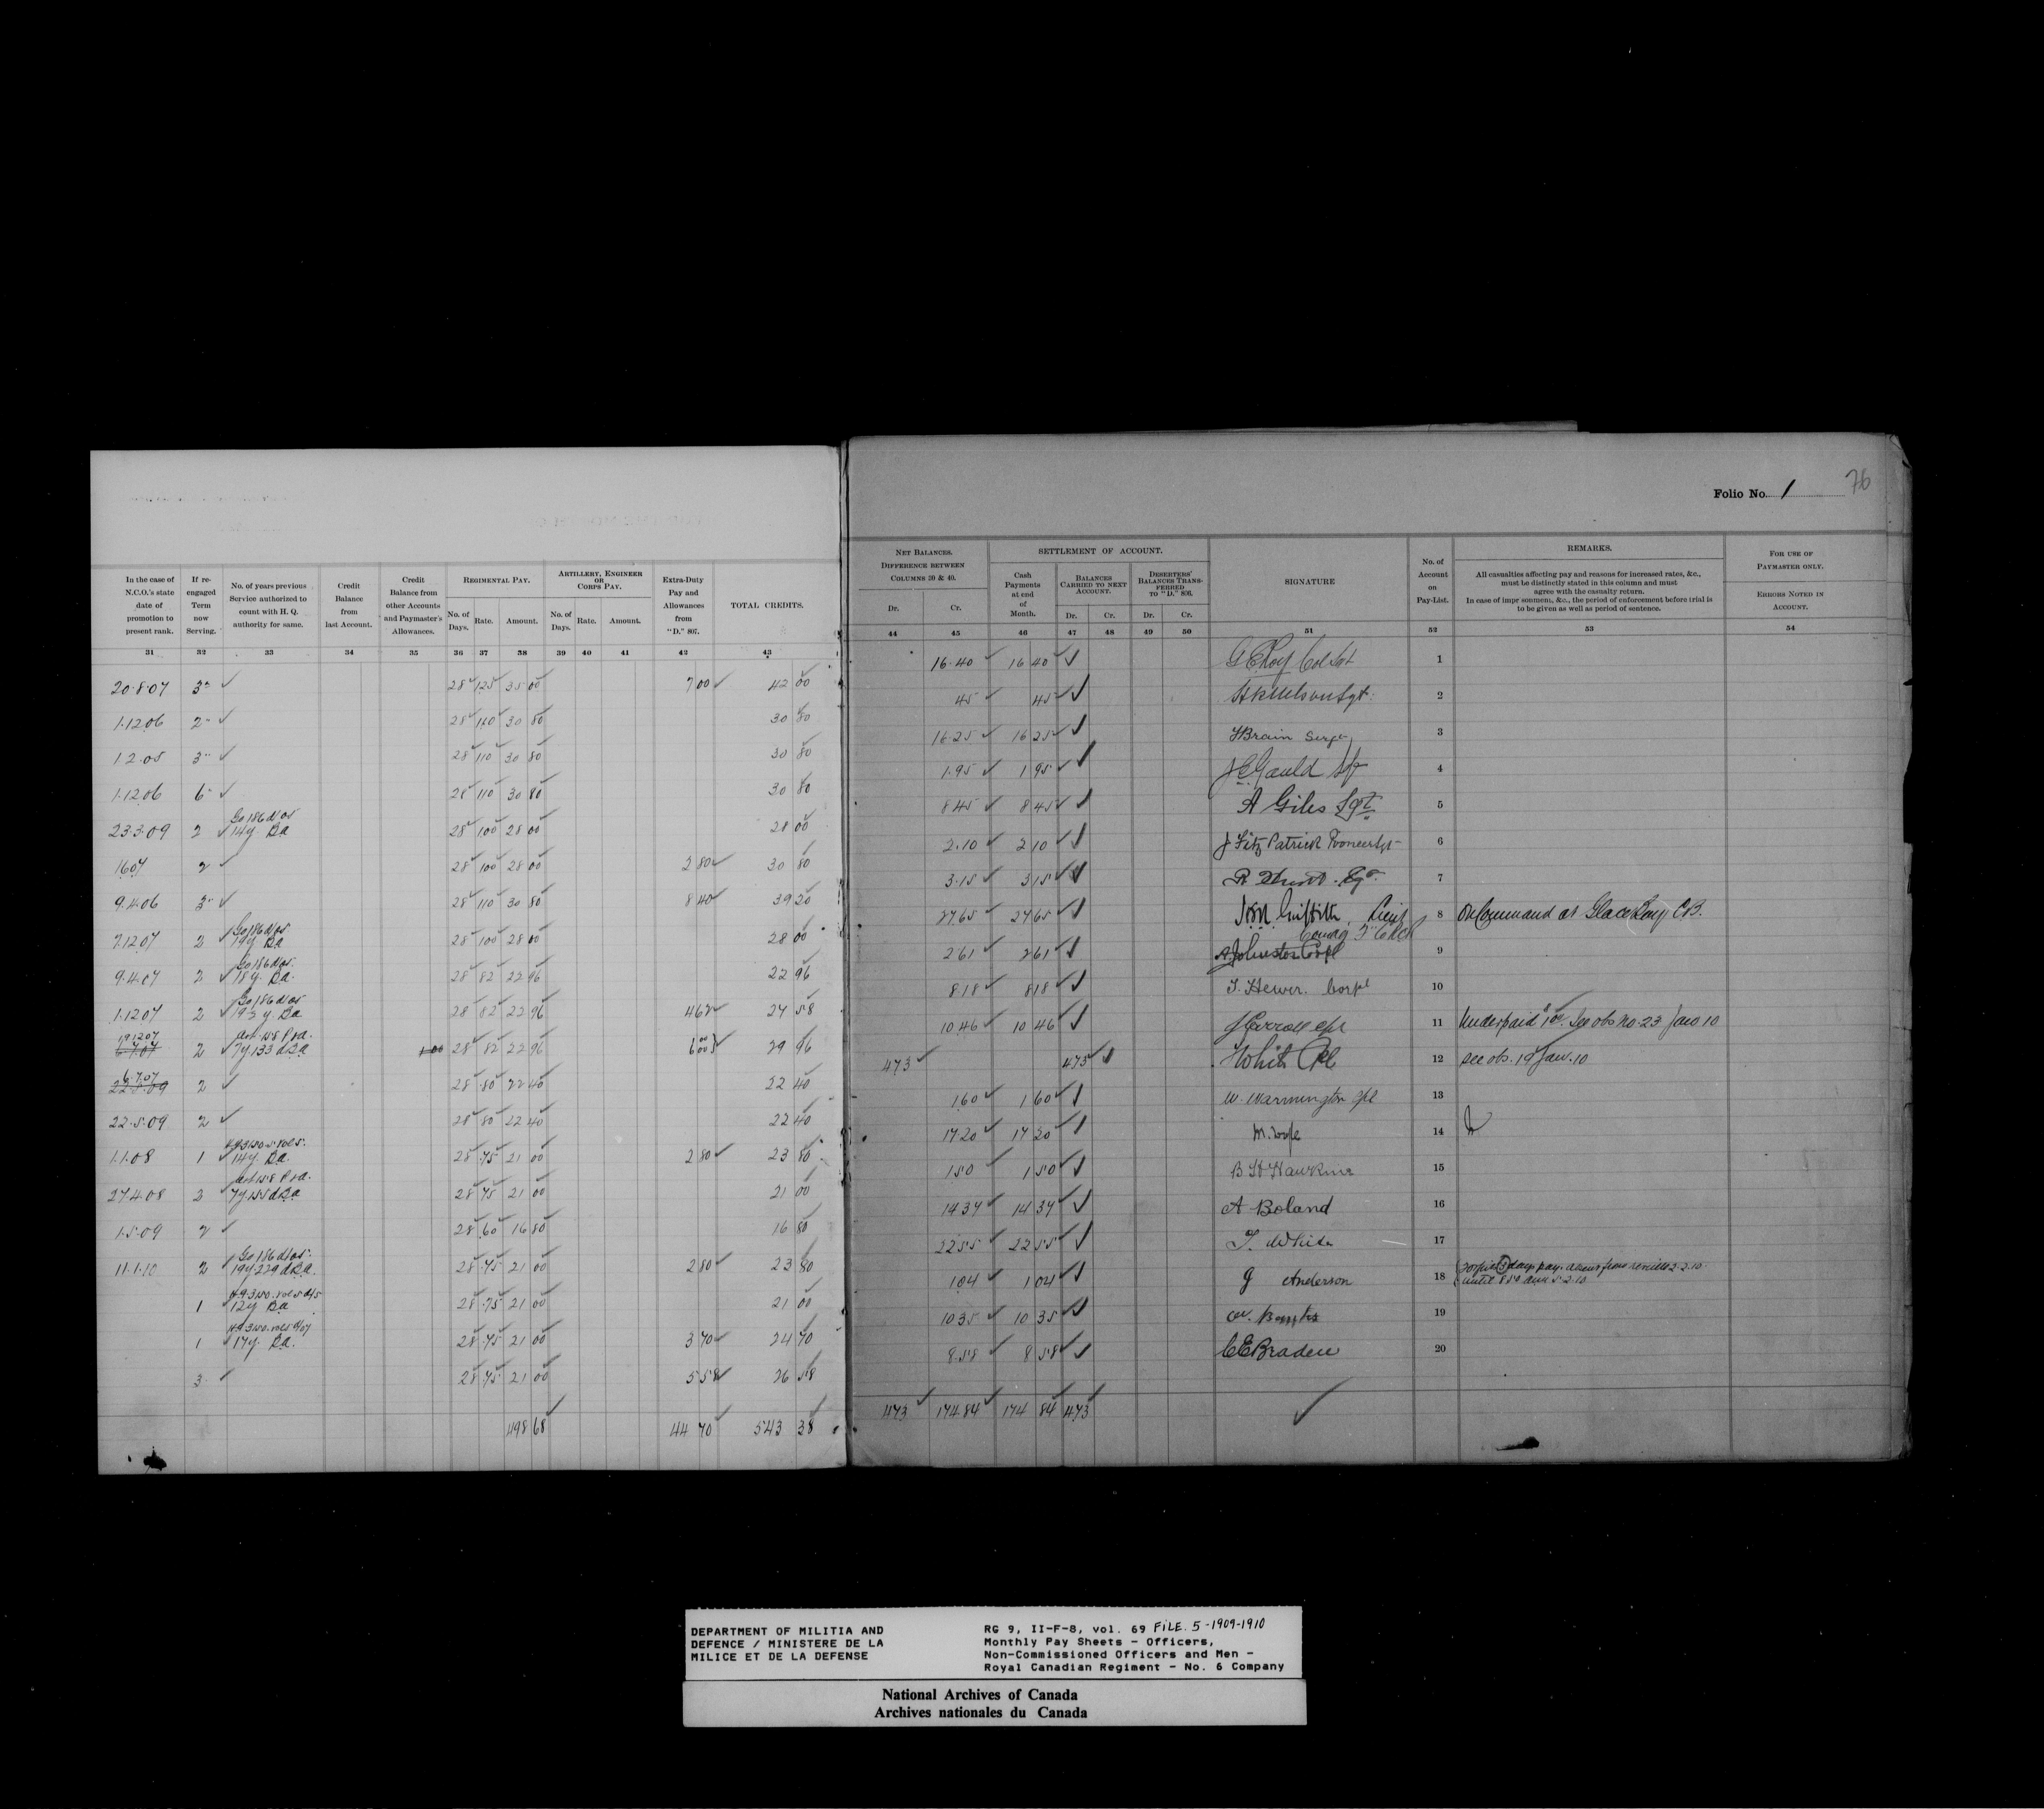 76
Folio No. 1
In the case of N.C.O.'s state date of promotion to present rank.
If re-engaged Term now Serving.
No. of years previous Service authorized to count with H. Q. authority for same.
Credit Balance from last Account.
Credit Balance from other Accounts and Paymaster's Allowances.
REGIMENTAL PAY.
No. of Days. Rate. Amount.
ARTILLERY, ENGINEER OR CORPS PAY.
No. of Days. Rate. Amount.
Extra-Duty Pay and Allowances from "D." 807.
TOTAL CREDITS.
31 32 33 34 35 36 37 38 39 40 41 42 43
20.8.07 3 28 125 35 00 7 00 42 00
1.12.06 2 28 110 30 80 30 80
1.2.05 3 28 110 30 80 30 80
1.12.06 6 28 110 30 80 30 80
Go 186 d/05
23.3.09 2 14y. Da 28 100 28 00 28 00
1.6.07 2 28 100 28 00 2 80 30 80
9.4.06 3 28 110 30 80 8 40 39 20
Go 186 d/05
7.12.07 2 19y Da 28 100 28 00 28 00
Go 186 d/05
9.4.07 2 18y. Da. 28 82 22 96 22 96
Go 186 d/05
1.12.07 2 Da 28 82 22 96 4 62 27 58
19.12.07
6.7.07 2 7y 133 d Da 1 00 28 82 22 96 6 00 00 29 96
6.7.07
22.5.09 2 28 80 22 40 22 40
22.5.09 2 28 80 22 40 22 40
1.1.08 1 14y. Da. 28 75 21 00 2 80 23 80
27.4.08 2 7y 155 d Da 28 75 21 00 21 00
1.5.09 2 28 60 16 80 16 80
Go 186 d/05
11.1.10 2 19y. 229 d Da. 28 75 21 00 2 80 23 80
1 12y Da 28 75 21 00 21 00
1 17y. Da. 28 75 21 00 3 70 24 70
3 28 75 21 00 5 58 26 58
498 68 44 70 543 38
NET BALANCES.
DIFFERENCE BETWEEN
COLUMNS 20 & 40.
Dr. Cr.
SETTLEMENT OF ACCOUNT.
Cash Payments at end of Month.
BALANCES CARRIED TO NEXT ACCOUNT.
Dr. Cr.
DESERTERS' BALANCES TRANSFERRED TO "D." 806.
Dr. Cr.
SIGNATURE
No. of Account on Pay-List.
REMARKS.
All casualties affecting pay and reasons for increased rates, &c.,
must be distinctly stated in this column and must
agree with the casualty return.
In case of impr sonment, &c., the period of enforcement before trial is
to be given as well as period of sentence.
FOR USE OF
PAYMASTER ONLY.
ERRORS NOTED IN
ACCOUNT.
44 45 46 47 48 49 50 51 52 53 54
16.40 16 40 G E Roy Col Sgt 1
45 45 Sgt. 2
16 25 16 25 Brain Serge 3
1.95 1 95 J C Gauld Sgt 4
8 45 8 45 A Giles Sgt 5
2.10 2 10 J Fitz Patrick Pioneer Sgt 6
3.15 3 15 R 7
27 65 27 65 Griffith, Lieut 8 On Command at Glace Bay C.B.
Comdg
2 61 2 61 A Johnston Corpl 9
8 18 8 18 T. Hewer. Corpl 10
10 46 10 46 J Carroll Cpl 11 Underpaid 1.00. See obs No. 23 Jan 10
4 73 4 73 White Cpl 12 See obs. 19 Jan. 10
1 60 1 60 W. Warmington Cpl 13
17 20 17 20 14
1 50 1 50 B H Hawkins 15
14 37 14 37 A Boland 16
22 55 22 55 T. White 17
1 04 1 04 J Anderson 18 Forfeits 3 days pay. absent from reveille 2.2.10.
until 5.2.10
10 35 10 35 W. 19
8.58 8 58 C E Braden 20
4 73 174 84 174 84 4 73
DEPARTMENT OF MILITIA AND
DEFENCE / MINISTERE DE LA
MILICE ET DE LA DEFENSE
RG 9, II-F-8, vol. 69 FILE. 5 -1909-1910
Monthly Pay Sheets - Officers,
Non-Commissioned Officers and Men -
Royal Canadian Regiment - No. 6 Company
National Archives of Canada
Archives nationales du Canada